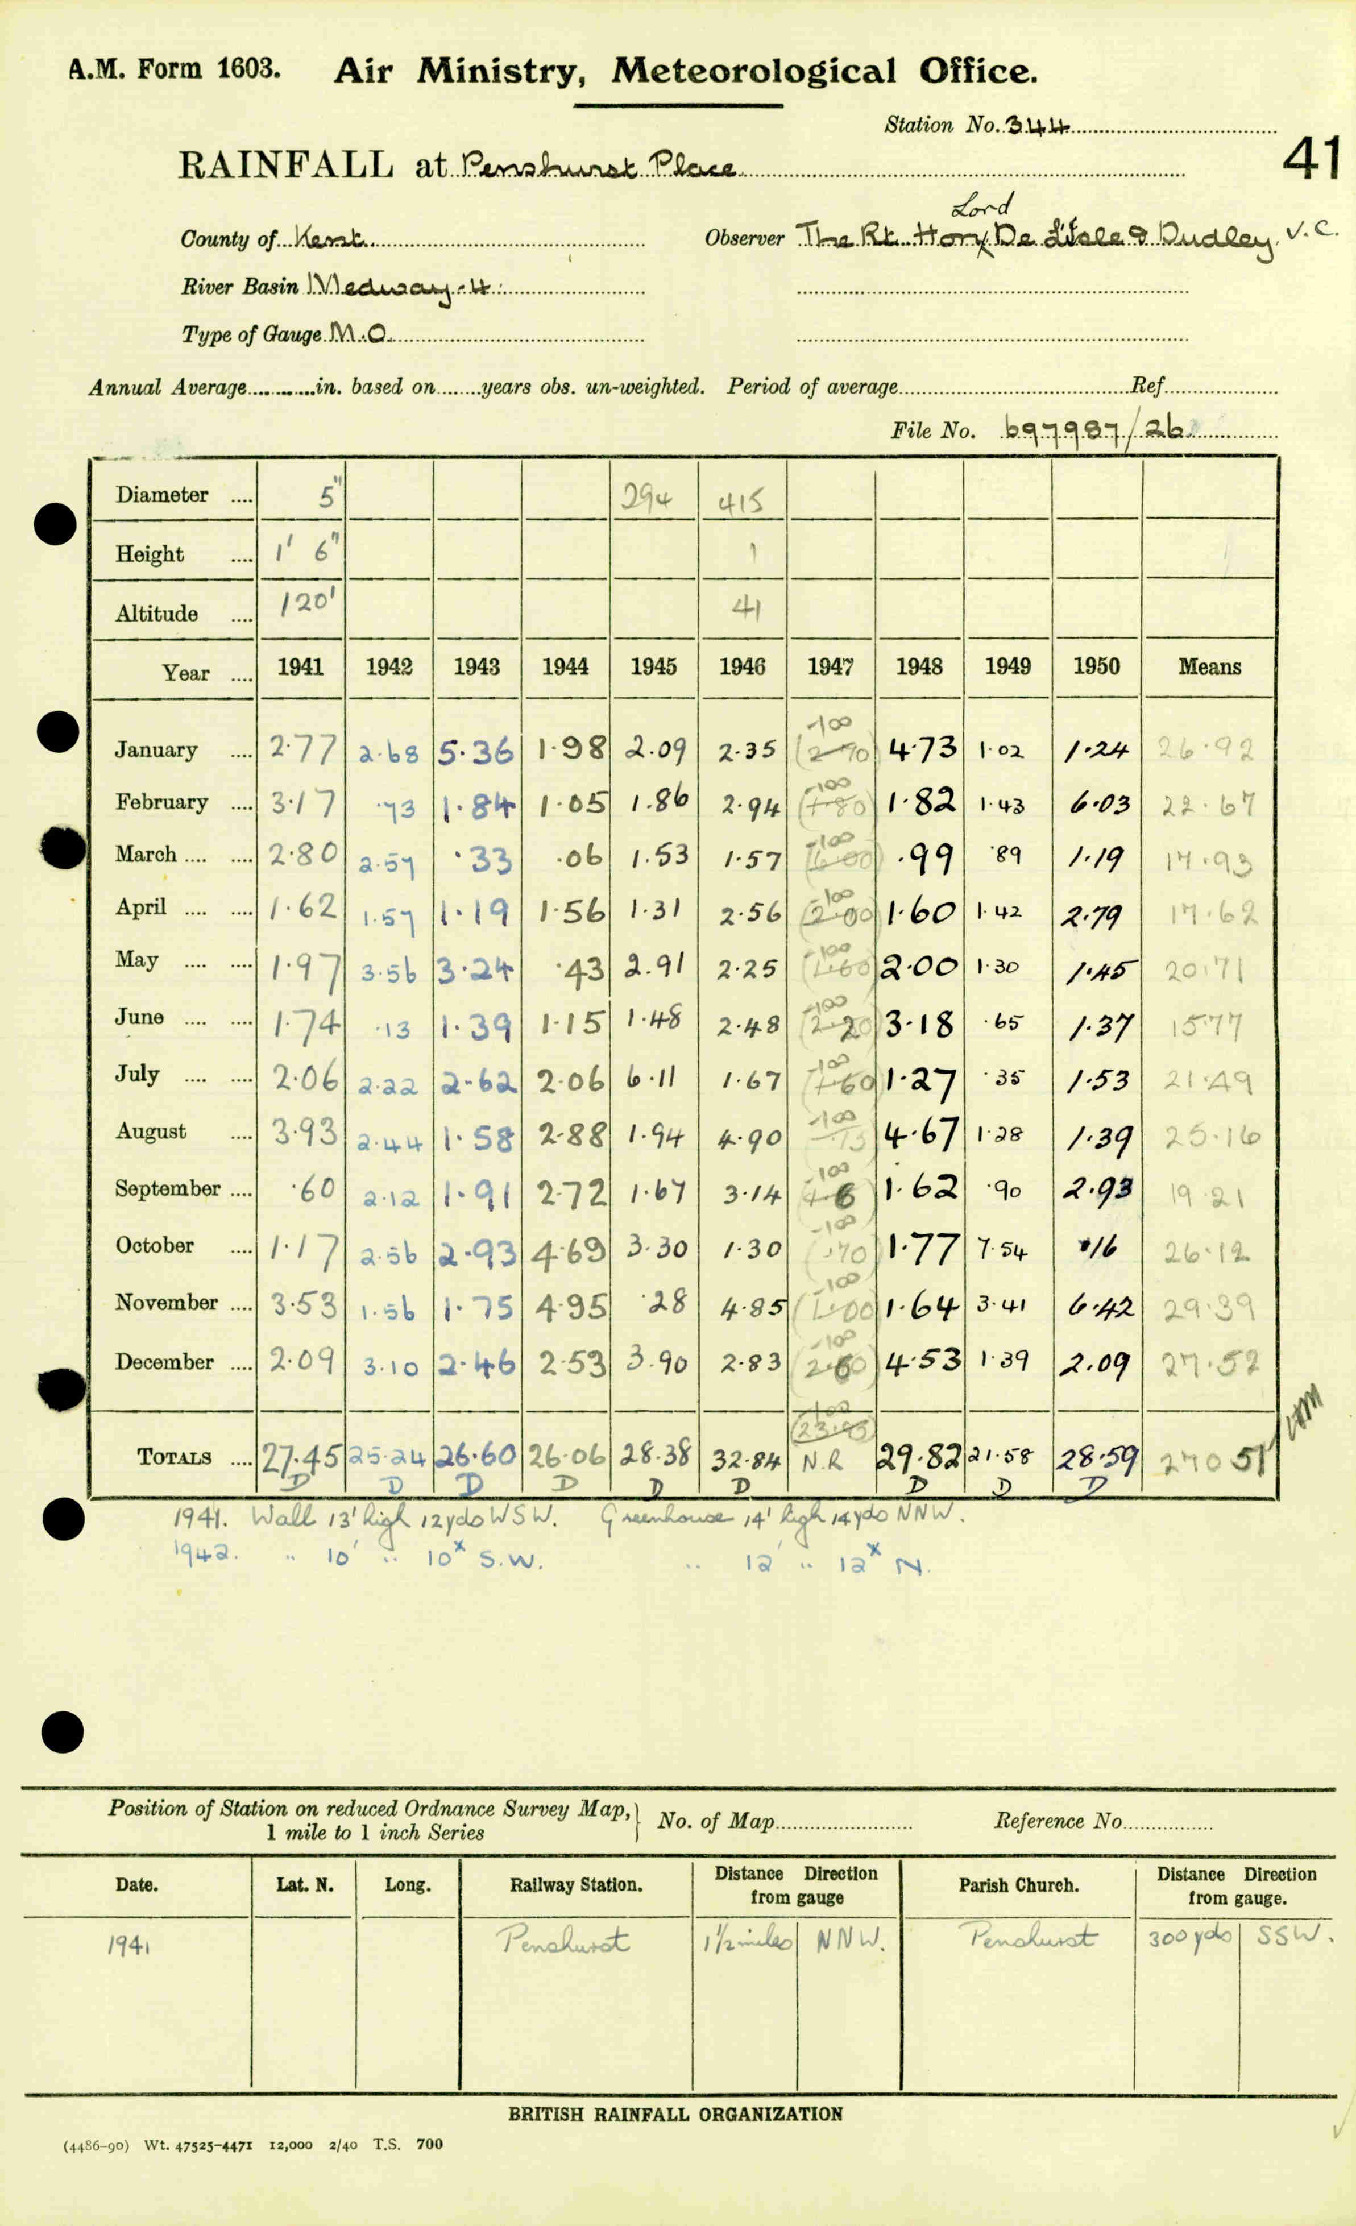 A.M. Form 1603. Air Ministry, Meteorological Office.
Station No. 344
41
RAINFALL at Penshurst Place
Lord
County of Kent Observer The Rt. Hon De Lisle & Dudley V.C.
River Basin Medway - 4
Type of Gauge M.O.
Annual Average in. based on years obs. un-weighted. Period of average Ref
File No. 697987/26
Diameter .... 5" 294 415
Height .... 1' 6" 1
Altitude .... 120' 41
Year .... 1941 1942 1943 1944 1945 1946 1947 1948 1949 1950 Means
-100
January .... 2.77 2.68 5.36 1.98 2.09 2.35 (2.70) 4.73 1.02 1.24 26.92
-100
February .... 3.17 .73 1.84 1.05 1.86 2.94 (1.80) 1.82 1.43 6.03 22.67
-100
March .... .... 2.80 2.57 .33 .06 1.53 1.57 (6.00) .99 .89 1.19 17.93
-100
April .... .... 1.62 1.57 1.19 1.56 1.31 2.56 (2.00) 1.60 1.42 2.79 17.62
-100
May .... .... 1.97 3.56 3.24 .43 2.91 2.25 (1.60) 2.00 1.30 1.45 20.71
-100
June .... .... 1.74 .13 1.39 1.15 1.48 2.48 3.18 .65 1.37 15.77
-100
July .... .... 2.06 2.22 2.62 2.06 6.11 1.67 (1.60) 1.27 .35 1.53 21.49
-100
August .... 3.93 2.44 1.58 2.88 1.94 4.90 4.67 1.28 1.39 25.16
-100
September .... .60 2.12 1.91 2.72 1.67 3.14 1.62 .90 2.93 19.21
-100
October .... 1.17 2.56 2.93 4.69 3.30 1.30 (.70) 1.77 7.54 .16 26.12
-100
November .... 3.53 1.56 1.75 4.95 .28 4.85 (1.00) 1.64 3.41 6.42 29.39
-100
December .... 2.09 3.10 2.46 2.53 3.90 2.83 4.53 1.39 2.09 27.52
-100
TOTALS .... 27.45 25.24 26.60 26.06 28.38 32.84 N.R 29.82 21.58 28.59 270 51
D D D D D D D D D
1941. Wall 13' high 12yds WSW. Greenhouse 14' high 14yds NNW.
1942. " 10' " 10x S.W. " 12' " 12x N.
Position of Station on reduced Ordnance Survey Map, } No. of Map Reference No.
1 mile to 1 inch Series
Date. Lat. N. Long. Railway Station. Distance Direction from gauge Parish Church. Distance Direction from gauge.
1941 Penshurst 1½ miles NNW. Penshurst 300 yds SSW.
BRITISH RAINFALL ORGANIZATION
(4486-90) Wt. 47525-4471 12,000 2/40 T.S. 700